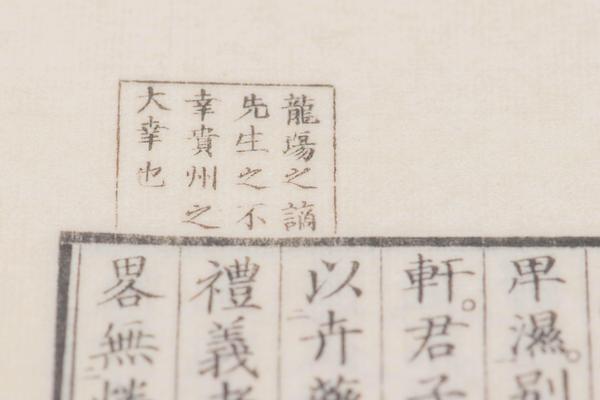 龍塲之謫
先生之不
幸貴州之
大幸也
卑濕。別
軒。君子
以卉藥
禮義者
畧無